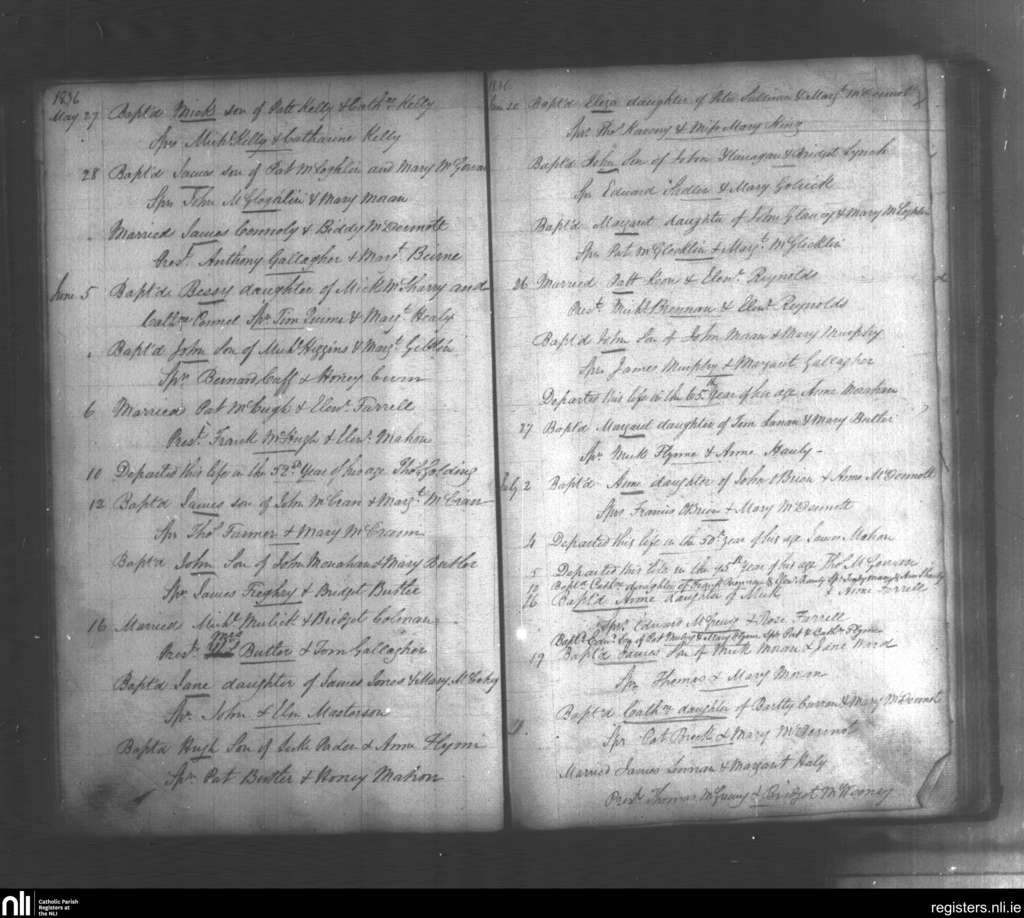 1836
May 27 Bapt'd Mick son of Patt Kelly & Cathe. Kelly
Sprs Michl. Kelly & Catharine Kelly
28 Bapt'd James son of Pat McLoghlin and Mary McGowan
Sprs John McGloghlin & Mary Moran
Married James Connoly & Biddy McDermott
Prest. Anthony Gallagher & Mart. Beirne
June 5 Bapt'd Bessy daughter of Mick McSharry and
Cathne Connel Sprs Tim & Margt. Healy
Bapt'd John son of Michl. Higgins & Margt.
Sprs Bernard Cuff & Honey
6 Married Pat McHugh & Elenr. Farrell
Prest. Frank McHugh & Elenr. Mahon
10 Departed this life in the 52nd. Year of his age Thos. Golding
12 Bapt'd James son of John McCran & Margt. McCran
Sprs Thos. Farmer & Mary McCrann
Bapt'd John Son of John Monahan & Mary Butler
Sprs James Feeghry & Bridget Butler
16 Married Michl. Mulick & Bridget Colman
Prest. Mrs Butler & Tom Gallagher
Bapt'd Jane daughter of James Jones & Mary
Sprs. John & Elen Masterson
Bapt'd Hugh Son of Luke Paden & Anne Flynn
Sprs Pat Butler & Honey Mahon
1836
June 20 Bapt'd Eliza daughter of Peter Sullivan & Margt. McDermott
Sprs. Thos. & Miss Mary King
Bapt'd John Son of John Flanagan & Bridget Lynch
Sprs Edward & Mary Golrick
Bapt'd Margaret daughter of John Glancy & Mary
Sprs Pat McGlocklin & Margt. McGlocklin
26 Married Patt Keon & Elenr. Reynolds
Prest. Michl. Brennan & Elenr. Reynolds
Bapt'd John Son of John Moran & Mary Murphy
Sprs James Murphy & Margaret Gallagher
Departed this life in the 65th Year of her age Anne Monahan
27 Bapt'd Margaret daughter of Tom Lanan & Mary Butler
Sprs Mick Flynne & Anne Hanly
July 2 Bapt'd Anne daughter of John O'Brien & Anne McDermott
Sprs Francis O'Brien & Mary McDermott
4 Departed this life in the 50th Year of his age James Mahon
5 Departed this life in the 45th Year of his age Thos. McGowan
12 Bapt'd Cathne. daughter of Frank Brennan & Hanly
16 Bapt'd Anne daughter of Mick & Anne Farrell
Sprs. Edward McGreevy & Rose Farrell
Bapt'd Son of Pat & Mary Flynn Sprs Pat & Cathne Flynn
19 Bapt'd James Son of Mick Moran & Jane Ward
Sprs Thomas & Mary Moran
Bapt'd Cathne daughter of Bartly Curran & Mary McDermott
Sprs Pat Breck & Mary McDermott
Married James Lennan & Margaret Haly
Prest. Thomas McGreevy & Bridget
nli
Catholic Parish
Registers at
the NLI
registers.nli.ie